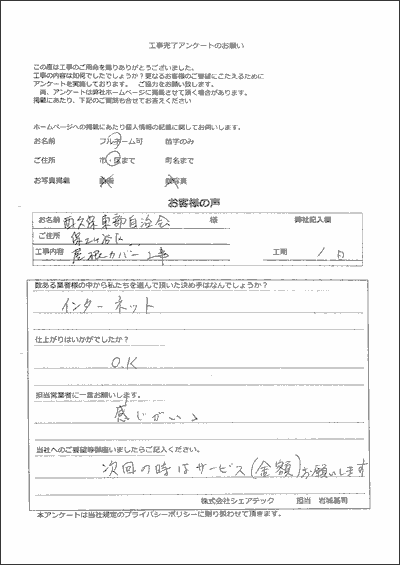 工事完了アンケートのお願い
この度は工事のご用命を賜りありがとうございました。
工事の内容は如何でしたでしょうか？更なるお客様のご要望にこたえるために
アンケートを実施しております。 ご協力をお願い致します。
尚、アンケートは弊社ホームページに掲載させて頂く場合があります。
掲載にあたり、下記のご質問も合せてお答えください
ホームページへの掲載にあたり個人情報の記載に関してお伺いします。
お名前 フルネーム可 苗字のみ
ご住所 市・区まで 町名まで
お写真掲載
お客様の声
お名前 西久保東部自治会 様 弊社記入欄
ご住所 保土ヶ谷区
工事内容 屋根カバー工事 工期 1日
数ある業者様の中から私たちを選んで頂いた決め手はなんでしょうか？
インターネット
仕上がりはいかがでしたか？
O.K
担当営業者に一言お願いします。
感じがいい
当社へのご要望等御座いましたらご記入ください。
次回の時はサービス(金額)お願いします
株式会社シェアテック 担当 岩城
本アンケートは当社規定のプライバシーポリシーに則り扱わせて頂きます。